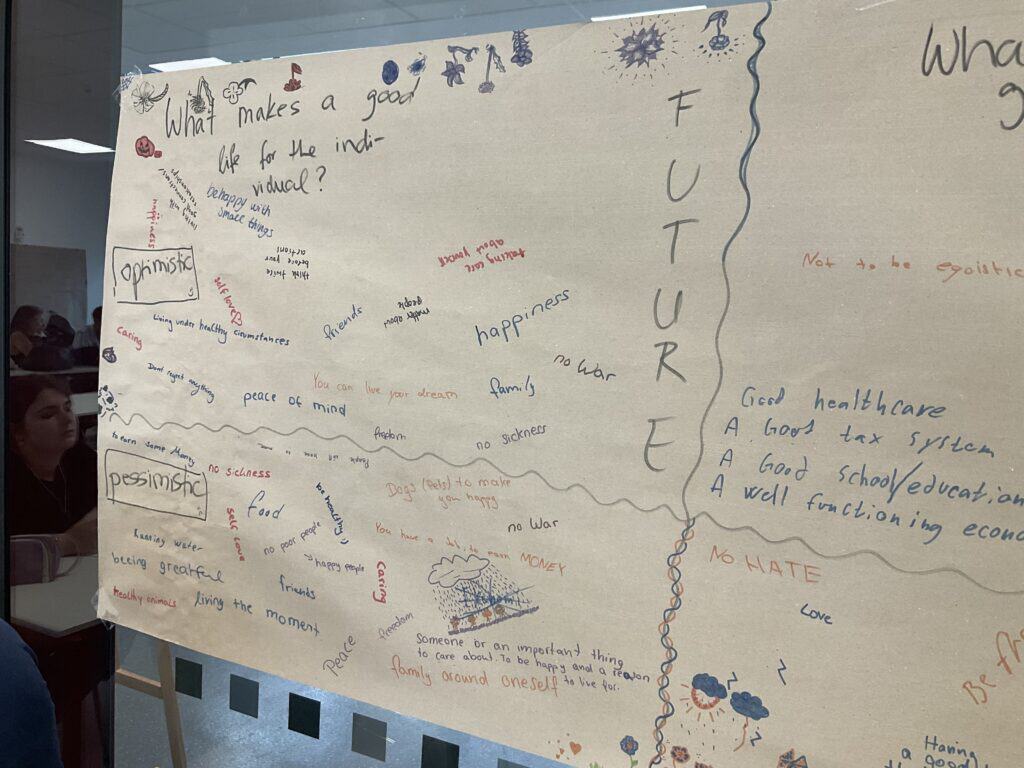 What makes a good
life for the indi-
vidual?
FUTURE
Wha
g
having
good connections
relationships
be happy with
small things
happiness
think twice
before your
actions
taking care
about yourself
optimistic
self love
Living under healthy cirumstances
friends
matter about
people
happiness
caring
no War
Dont regret anything
You can live your dream
family
peace of mind
freedom
no sickness
to earn some Money
pessimistic
no sickness
food
be healthy
Dogs (Pets) to make
you happy
self love
no poor people
happy people
no War
You have a Job, to earn MONEY
Running water
beeing greatful
friends
caring
healthy animals
living the moment
freedom
Peace
Someone or an important thing
to care about. To be happy and a reason
to live for.
family around oneself
Not to be egoistic
Good healthcare
A Good tax system
A Good school/education
A well functioning econo
NO HATE
Love
Be fr
Having
a good